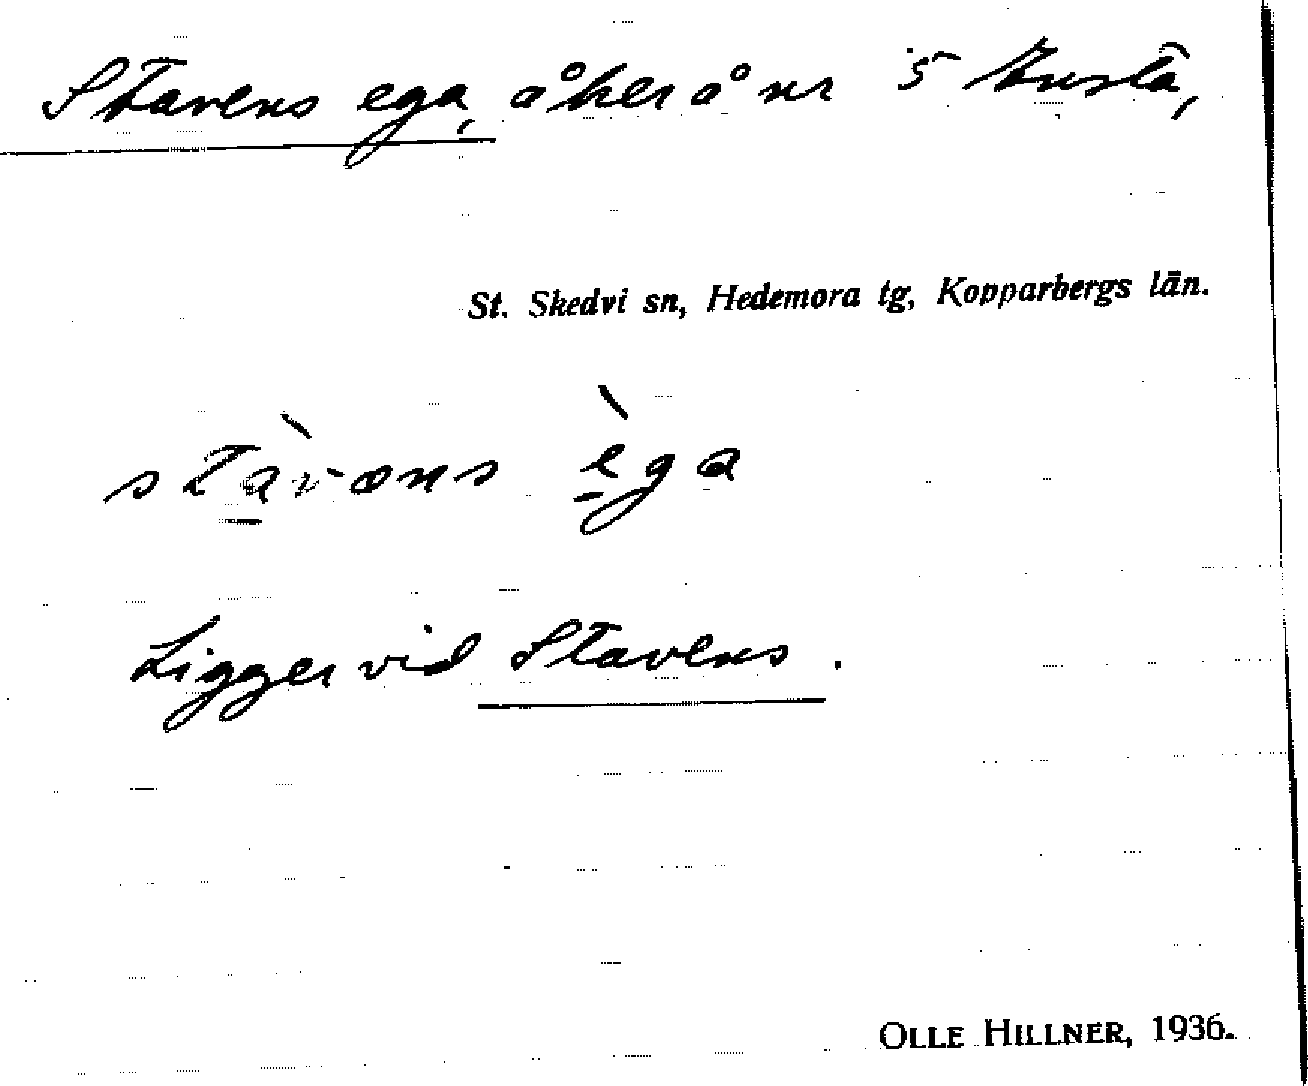 Stavens ega, åker å nr 5 Knusta,
St. Skedvi sn, Hedemora tg, Kopparbergs län.
stàvons èga
Ligger vid Stavens.
OLLE HILLNER, 1936.